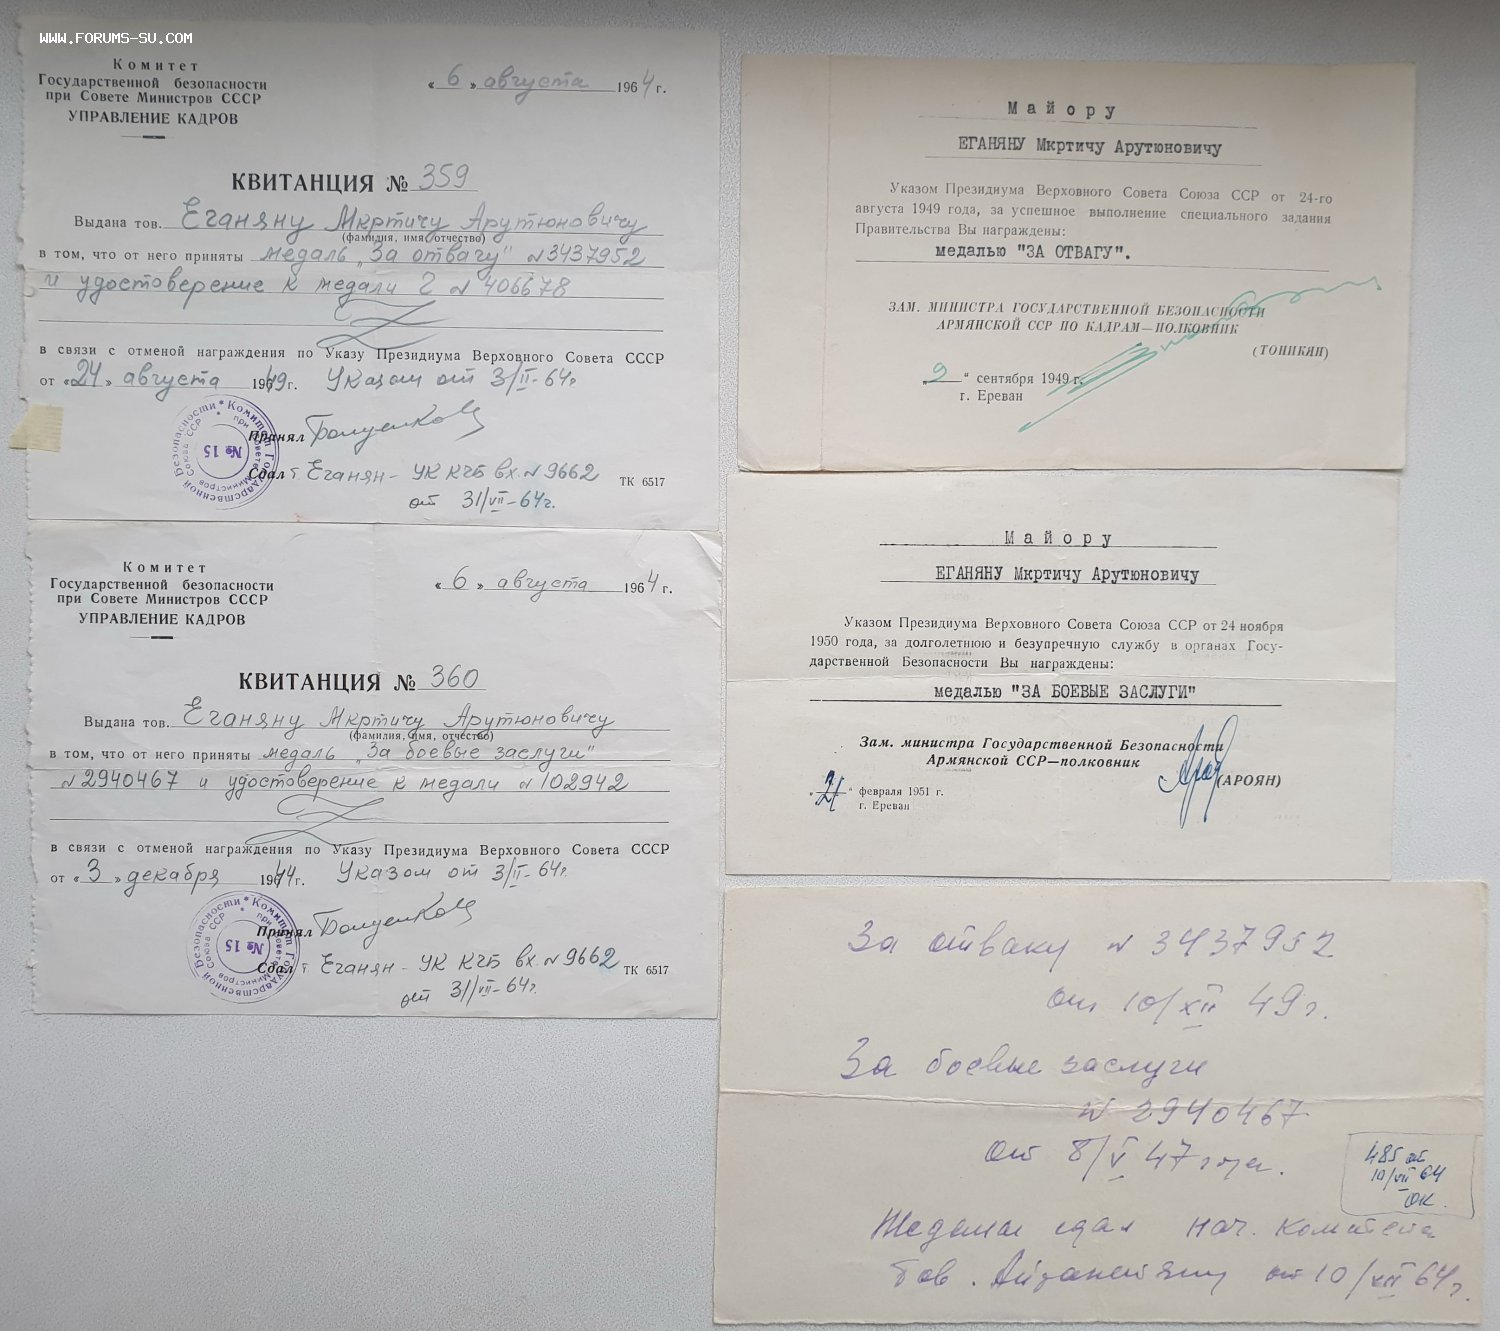 WWW.FORUMS-SU.COM
Комитет
Государственной безопасности
при Совете Министров СССР
УПРАВЛЕНИЕ КАДРОВ
« 6 » августа 1964 г.
КВИТАНЦИЯ № 359
Выдана тов. Еганяну Мкртичу Арутюновичу
(фамилия, имя, отчество)
в том, что от него приняты медаль „За отвагу" №3437952
и удостоверение к медали Г № 406678
в связи с отменой награждения по Указу Президиума Верховного Совета СССР
от « 24 » августа 1949 г. Указом от 3/II-64г
Принял
Сдал т Еганян - УК КГБ вх. №9662
от 31/VII-64г.
ТК 6517
Комитет Государственной Безопасности * при Совете Министров Союза ССР *
№ 15
Комитет
Государственной безопасности
при Совете Министров СССР
УПРАВЛЕНИЕ КАДРОВ
« 6 » августа 1964 г.
КВИТАНЦИЯ № 360
Выдана тов. Еганяну Мкртичу Арутюновичу
(фамилия, имя, отчество)
в том, что от него приняты медаль „За боевые заслуги"
№2940467 и удостоверение к медали №102942
в связи с отменой награждения по Указу Президиума Верховного Совета СССР
от « 3 » декабря 1944 г. Указом от 3/II-64г.
Принял
Сдал т Еганян - УК КГБ вх. №9662
от 31/VII-64г.
ТК 6517
Комитет Государственной Безопасности * при Совете Министров Союза ССР *
№ 15
Майору
ЕГАНЯНУ Мкртичу Арутюновичу
Указом Президиума Верховного Совета Союза ССР от 24-го
августа 1949 года, за успешное выполнение специального задания
Правительства Вы награждены:
медалью "ЗА ОТВАГУ".
ЗАМ. МИНИСТРА ГОСУДАРСТВЕННОЙ БЕЗОПАСНОСТИ
АРМЯНСКОЙ ССР ПО КАДРАМ—ПОЛКОВНИК
(ТОНИКЯН)
„ 9 “ сентября 1949 г.
г. Ереван
Майору
ЕГАНЯНУ Мкртичу Арутюновичу
Указом Президиума Верховного Совета Союза ССР от 24 ноября
1950 года, за долголетнюю и безупречную службу в органах Госу-
дарственной Безопасности Вы награждены:
медалью "ЗА БОЕВЫЕ ЗАСЛУГИ"
Зам. министра Государственной Безопасности
Армянской ССР—полковник
(АРОЯН)
„ 21 “ февраля 1951 г.
г. Ереван
За отваку № 3437952
от 10/XII 49 г.
За боевые заслуги
№ 2940467
от 8/V 47 года.
485 от
10/VII 64
ОК.
Медали сдал нач. комитета
тов. от 10/XII 64 г.